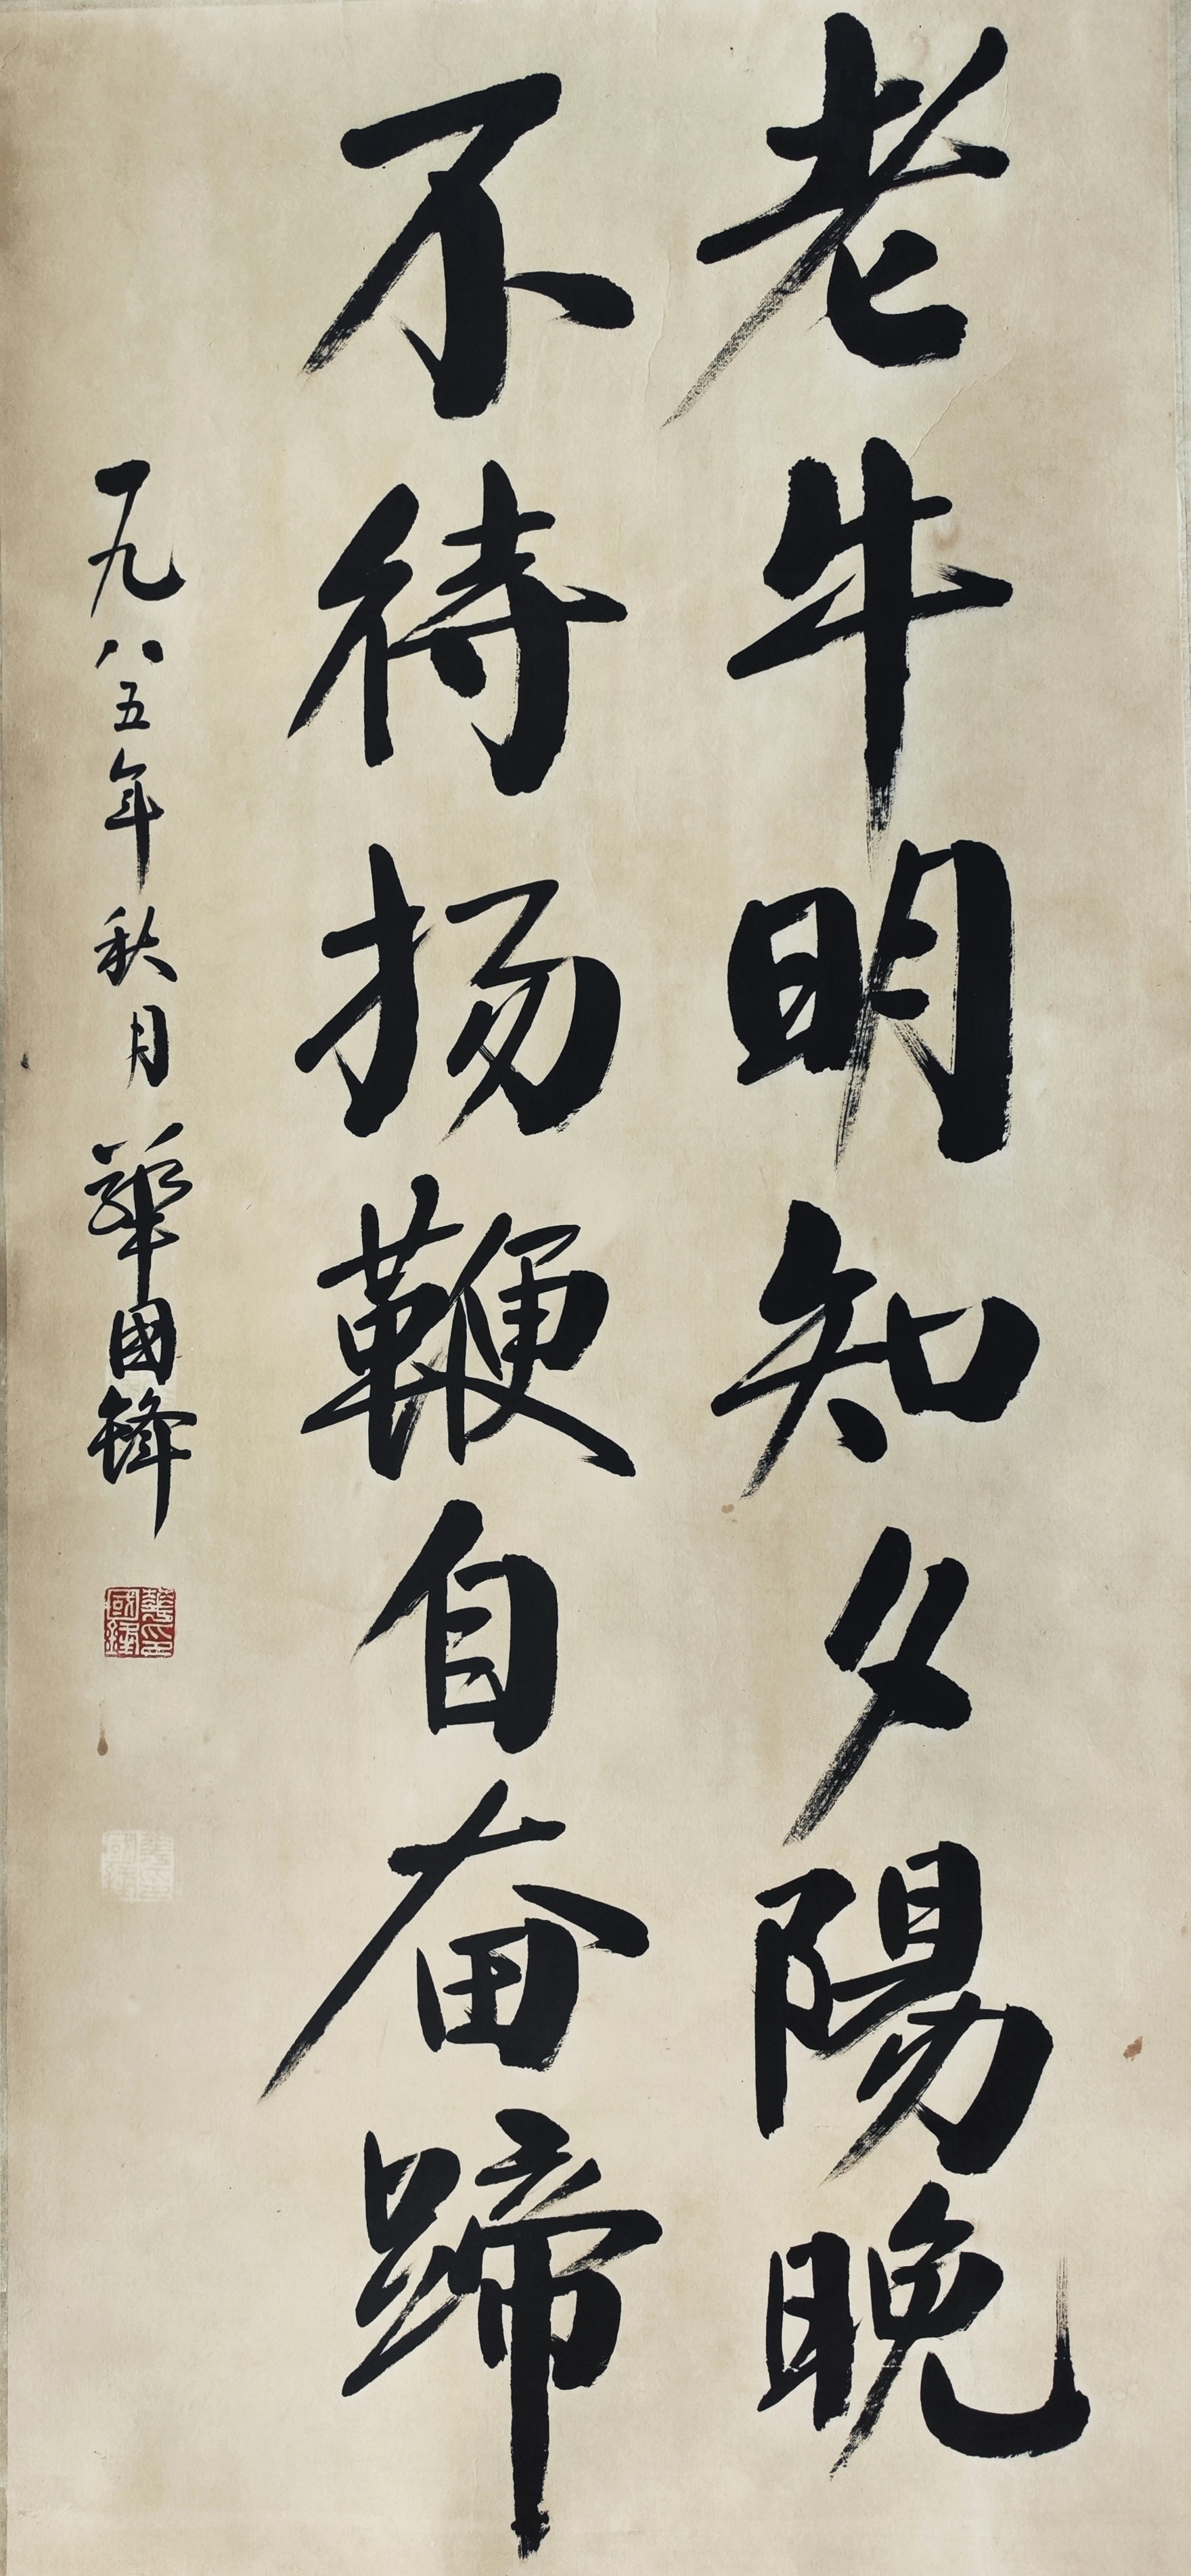 老牛明知夕陽晚
不待扬鞭自奋蹄
一九八五年秋月 華國鋒
華國鋒印